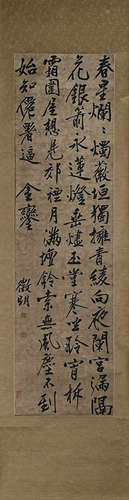 春星爛爛燭薇垣獨擁青綾向夜闌宮漏隔
花銀箭永蓮燈垂燼玉堂寒坐聆宵柝
霜圍屋想見郊禋月滿壇鈴索無風塵不到
始知僊署逼金鑾 徵明